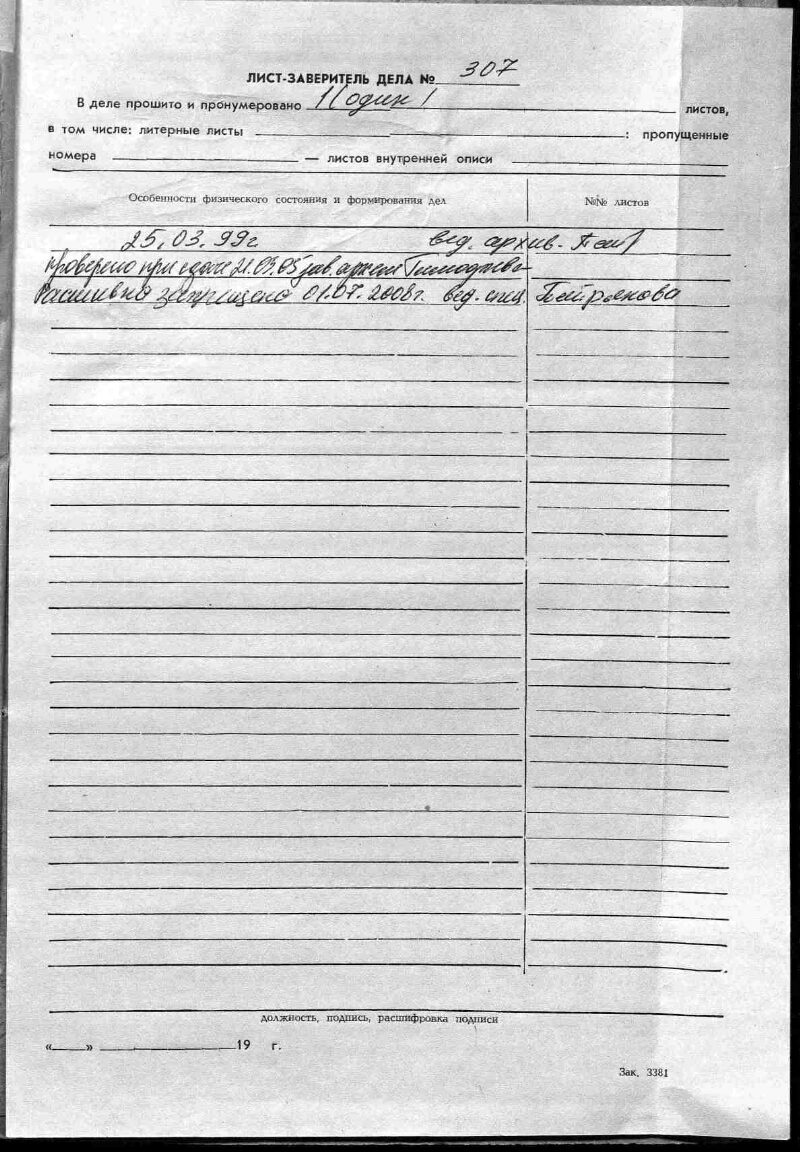 ЛИСТ-ЗАВЕРИТЕЛЬ ДЕЛА № 307
В деле прошито и пронумеровано 1 (один) листов,
в том числе: литерные листы : пропущенные
номера — листов внутренней описи
Особенности физического состояния и формирования дел №№ листов
25.03.99г вед. архив.
Проверено при сдаче 21.03.05 зав.
Расшивка запрещена 01.07.2008г. вед. спец.
должность, подпись, расшифровка подписи
« » 19 г.
Зак. 3381